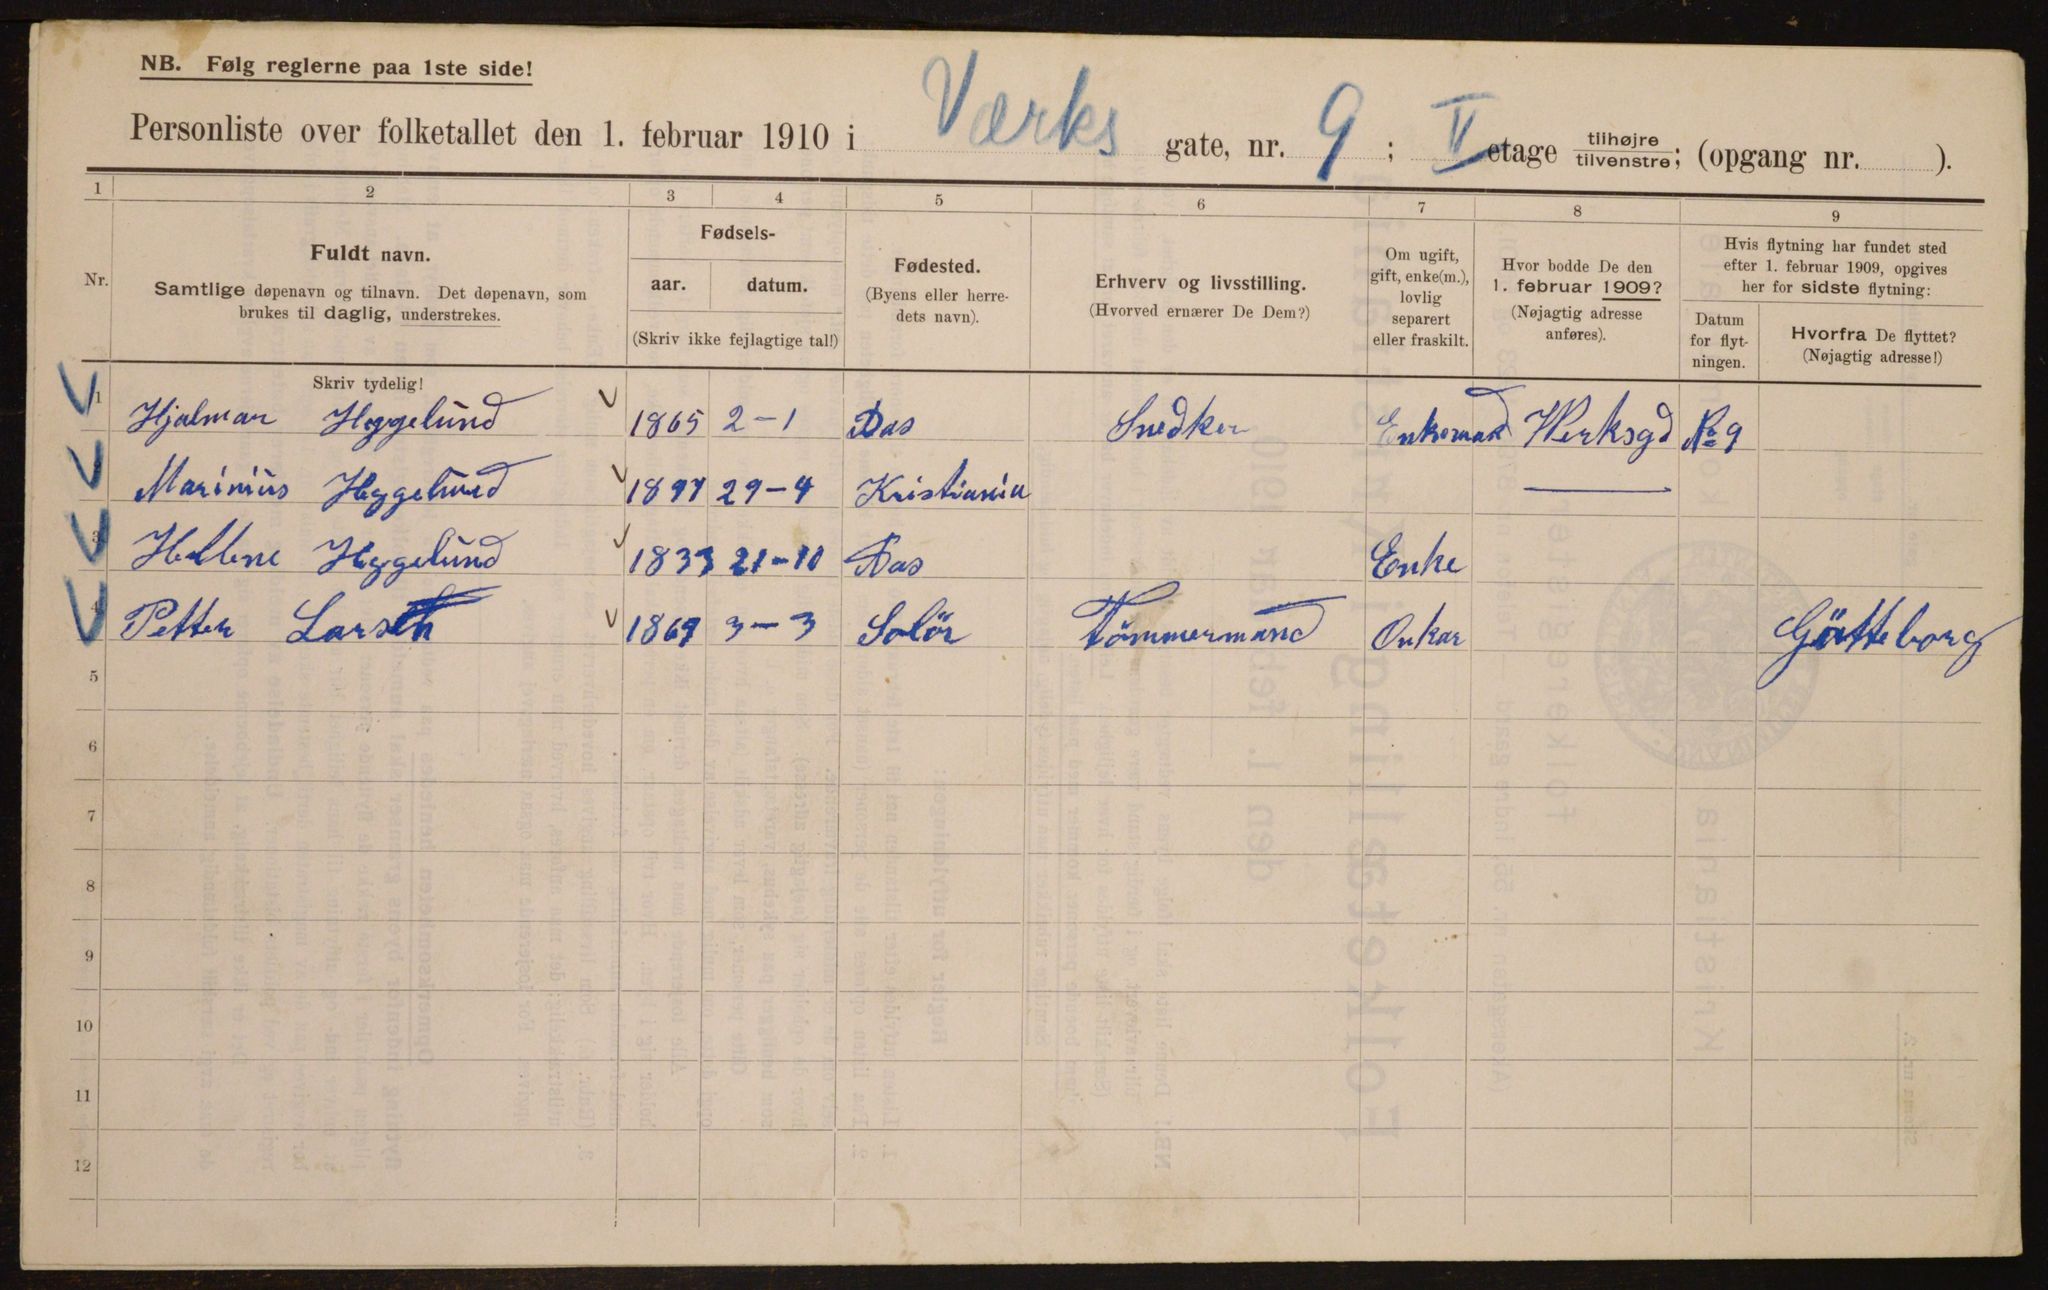 NB. Følg reglerne paa 1ste side!
Personliste over folketallet den 1. februar 1910 i Værks gate, nr. 9; V etage tilhøjre/tilvenstre; (opgang nr. ).
1 2 3 4 5 6 7 8 9
Nr.
Fuldt navn.
Samtlige døpenavn og tilnavn. Det døpenavn, som
brukes til daglig, understrekes.
Skriv tydelig!
Fødsels-
aar. datum.
(Skriv ikke fejlagtige tal!)
Fødested.
(Byens eller herre-
dets navn).
Erhverv og livsstilling.
(Hvorved ernærer De Dem?)
Om ugift,
gift, enke(m.),
lovlig
separert
eller fraskilt.
Hvor bodde De den
1. februar 1909?
(Nøjagtig adresse
anføres).
Hvis flytning har fundet sted
efter 1. februar 1909, opgives
her for sidste flytning:
Datum
for flyt-
ningen.
Hvorfra De flyttet?
(Nøjagtig adresse!)
1 Hjalmar Heggelund 1865 2-1 Aas Snedker Enkemand Werksgd No 9
2 Marinius Heggelund 1897 29-4 Kristiania
3 Hellene Heggelund 1833 21-10 Aas Enke
4 Petter Larsen 1869 3-3 Solör Tömmermand Götteborg
5
6
7
8
9
10
11
12